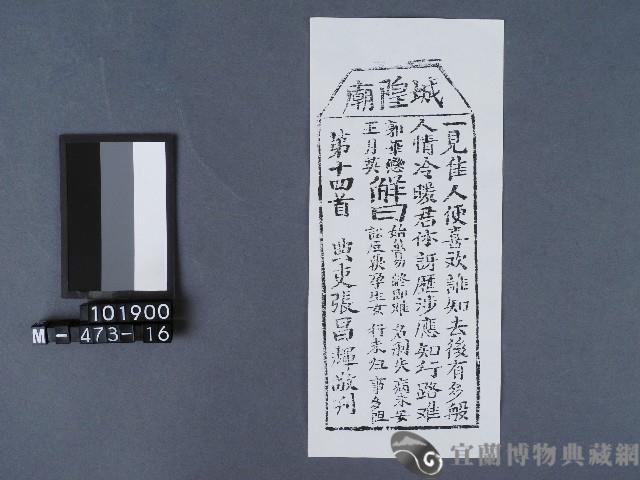 城隍廟
一見佳人便喜欢誰知去後有多般
人情冷暖君休訝歷涉應知行路难
郭華戀
王月英
解曰
始雖易 終則難 名利失 病未安
訟反覆 孕生女 行未归 事多阻
第十四首 典吏張昌輝敬刊
101900
M-473-16
宜蘭博物典藏網